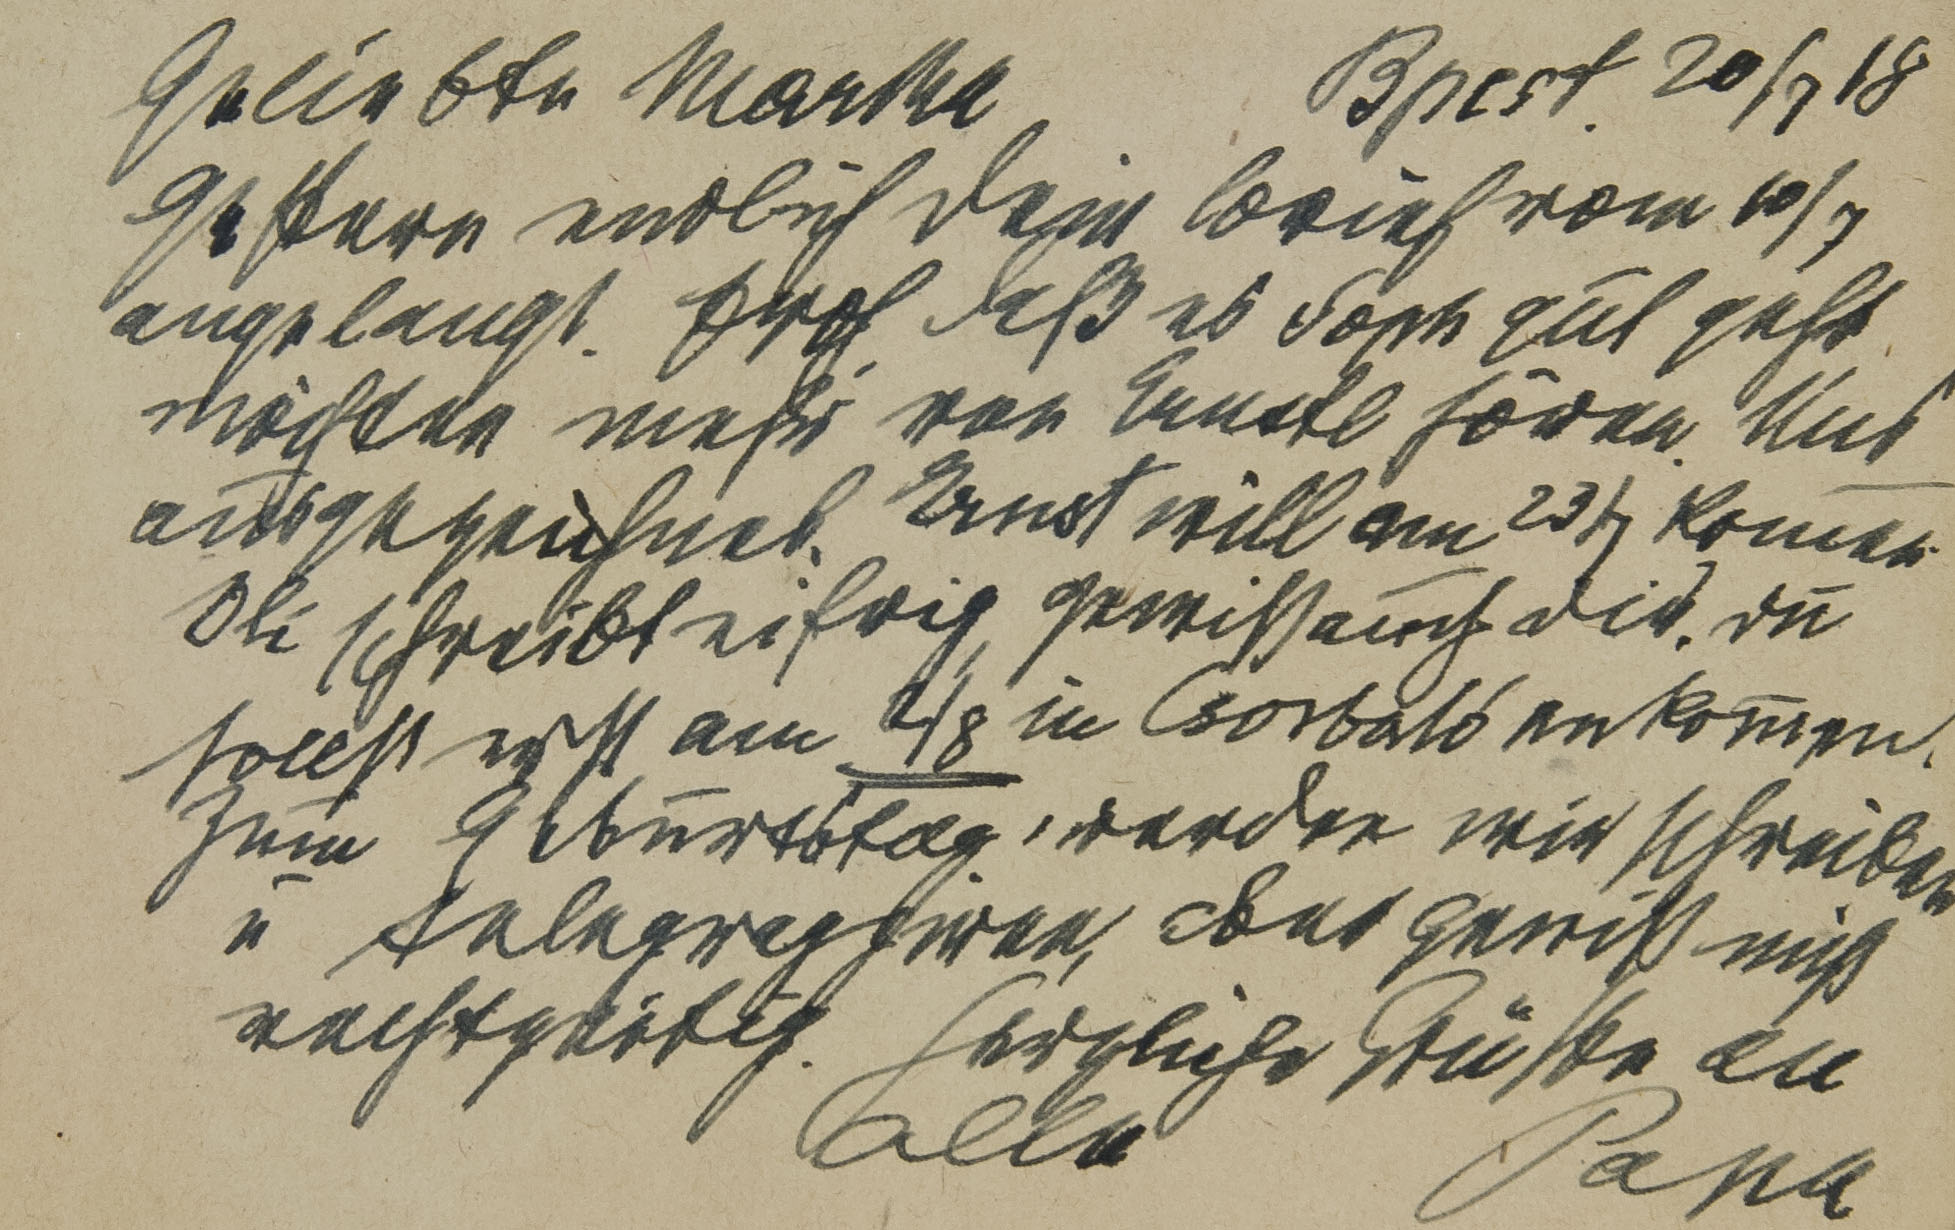 Geliebte Martha Bpest. 20/7 18
Gestern endlich dein Brief vom 10/7
angelangt. Froh, daß es Soph gut geht
möchten mehr von Ernstl hören. Uns
ausgezeichnet. Ernst will am 23/7 komen
Oli schreibt eifrig, gewiß auch dir. du
sollst erst am 2/8 in Csorbató ankom̅en.
Zum Geburtstag werden wir schreiben
u telegraphiren, aber gewiß nicht
rechtzeitig. Herzliche Grüße an
alle Papa